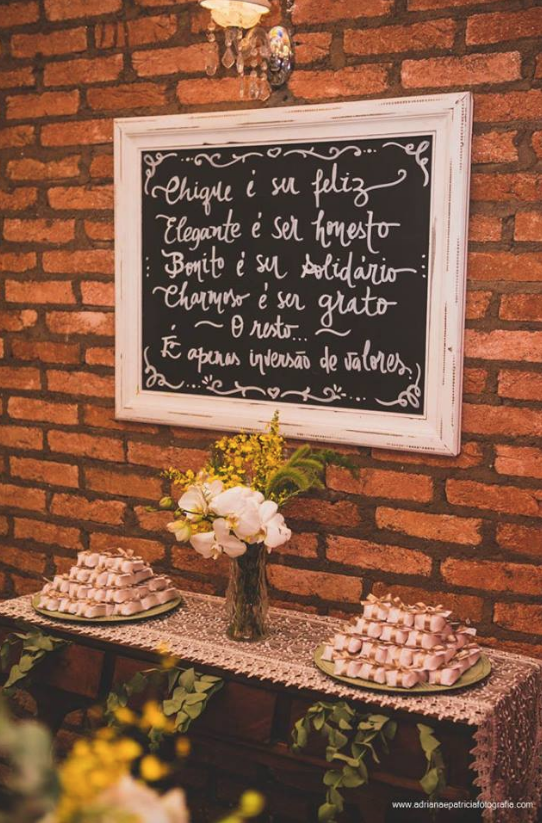 Chique é ser feliz
Elegante é ser honesto
Bonito é ser solidário
Charmoso é ser grato
O resto...
É apenas inversão de valores.
www.adrianaepatriciafotografia.com